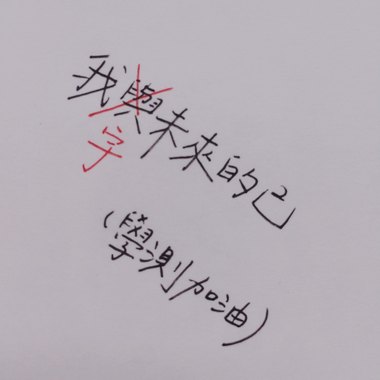 我與未來的己
字
(學測加油)